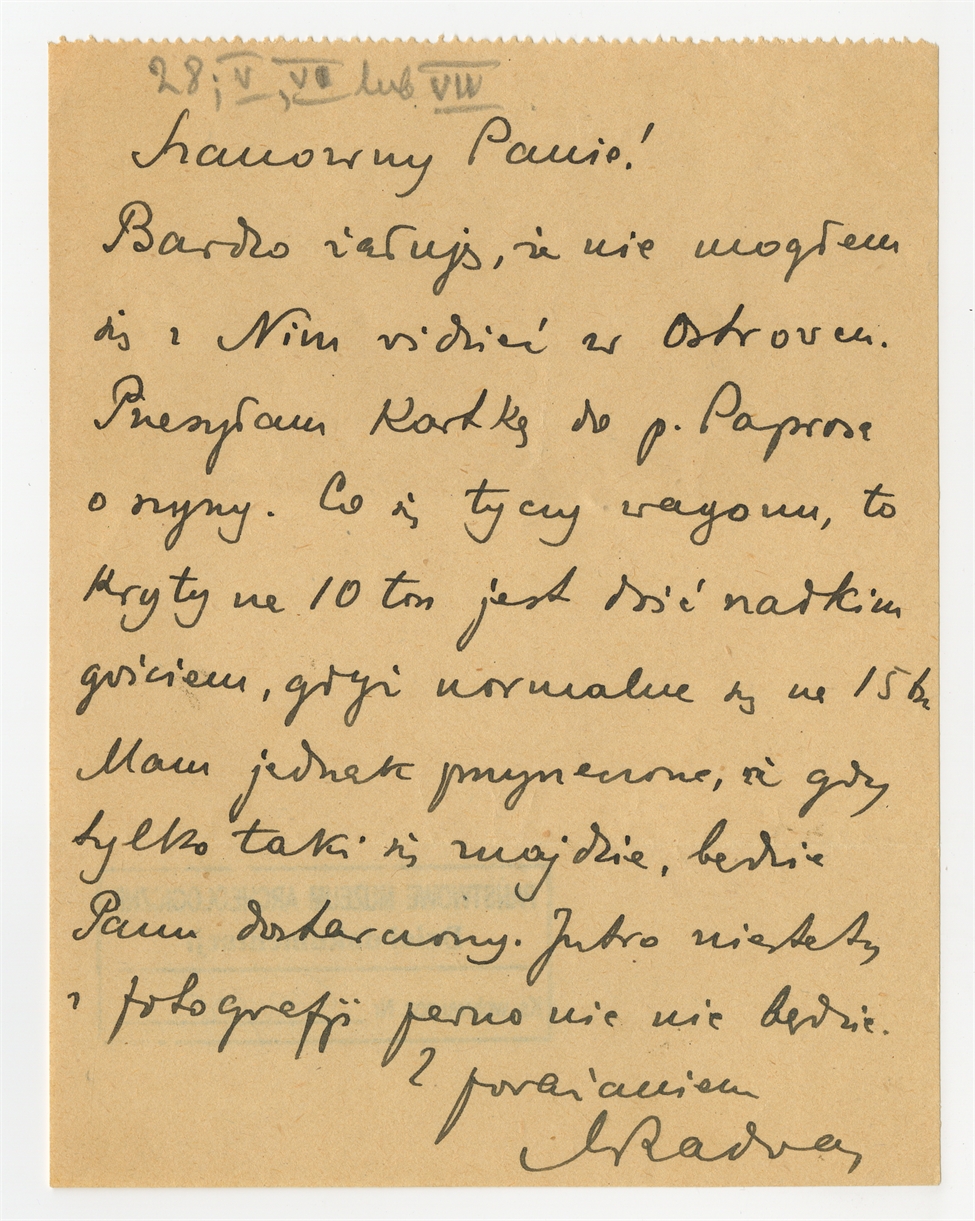 28; V, VI lub VII
Szanowny Panie!
Bardzo żałuję, że nie mogłem
się z Nim widzieć w Ostrowcu.
Przesyłam Kartkę do p. Paprosa
o szyny. Co się tyczy wagonu, to
kryty na 10 ton jest dziś rzadkim
gościem, gdyż normalne są na 15 tn
Mam jednak przyrzeczone, że gdy
tylko taki się znajdzie, będzie
Panu dostarczony. Jutro niestety
z fotografji pewno nic nie będzie.
Z poważaniem
MRadwan